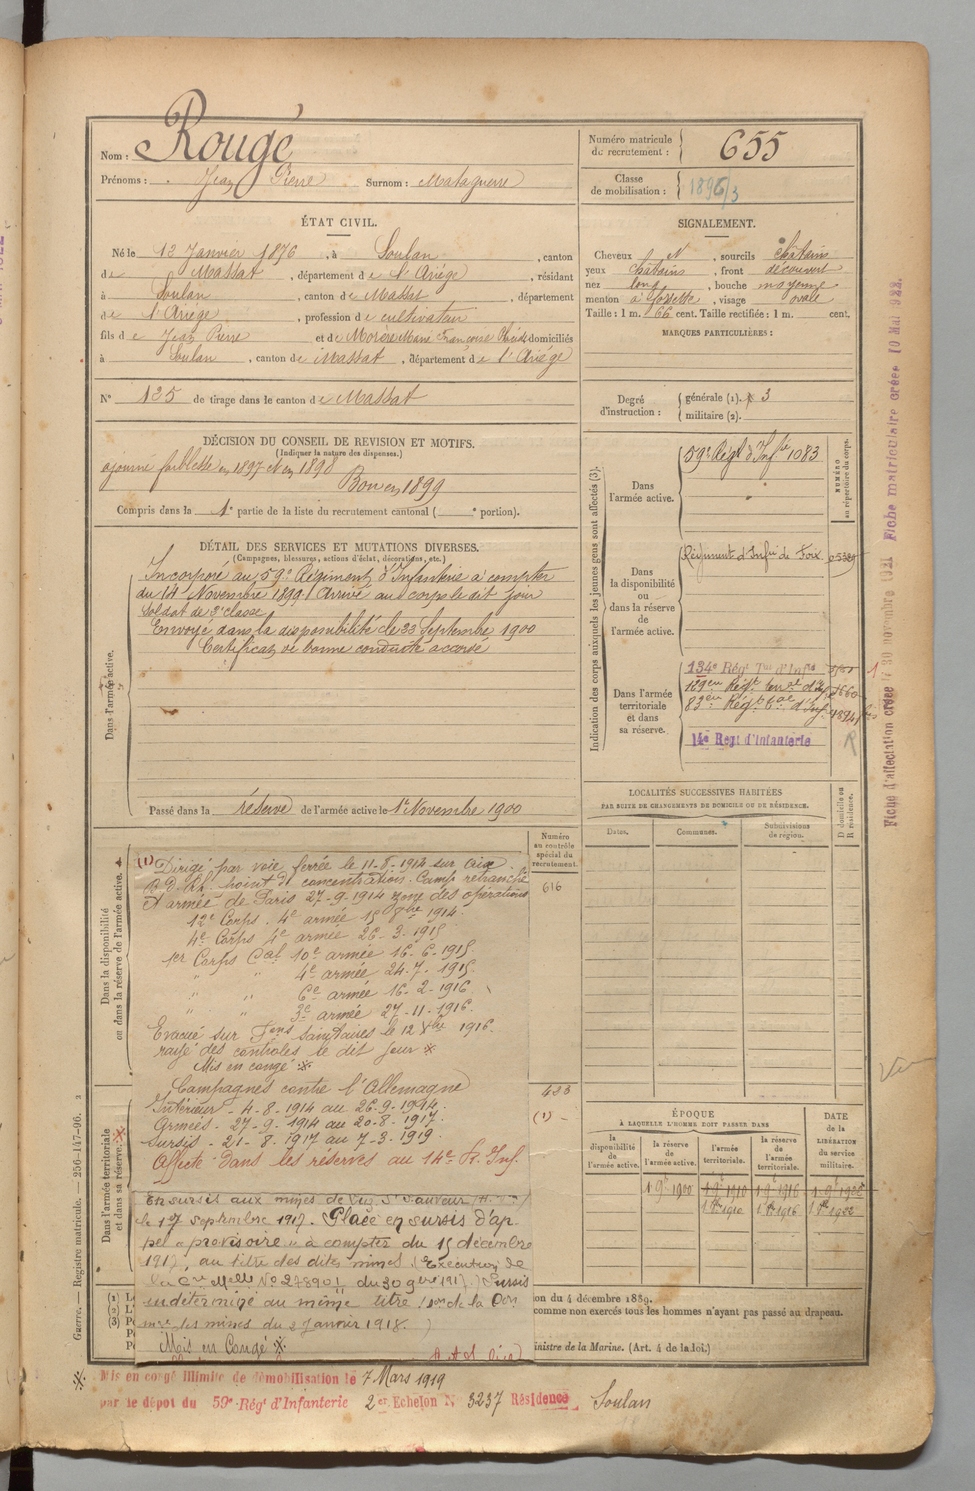 Nom : Rougé
Prénoms : Jean Pierre Surnom : Mataguerre
Numéro matricule du recrutement : 655
Classe de mobilisation : 1896/3
ÉTAT CIVIL.
Né le 12 Janvier 1876, à Soulan, canton
de Massat, département de l'Ariège, résidant
à Soulan, canton de Massat, département
de l'Ariège, profession de cultivateur
fils de Jean Pierre et de Morère Marie Françoise domiciliés
à Soulan, canton de Massat, département de l'Ariège
N° 135 de tirage dans le canton de Massat
SIGNALEMENT.
Cheveux N, sourcils châtains
yeux châtains, front découvert
nez long, bouche moyenne
menton à fossette, visage ovale
Taille : 1 m. 66 cent. Taille rectifiée : 1 m. cent.
MARQUES PARTICULIÈRES :
Degré d'instruction : générale (1). 3
militaire (2).
DÉCISION DU CONSEIL DE REVISION ET MOTIFS.
(Indiquer la nature des dispenses.)
ajourné faiblesse en 1897 et en 1898
Bon en 1899
Compris dans la 1e partie de la liste du recrutement cantonal ( e portion).
DÉTAIL DES SERVICES ET MUTATIONS DIVERSES.
(Campagnes, blessures, actions d'éclat, décorations, etc.)
Dans l'armée active.
Incorporé au 59e Régiment d'Infanterie à compter
du 14 Novembre 1899 Arrivé au corps le dit jour
Soldat de 2e classe
Envoyé dans la disponibilité le 23 Septembre 1900
Certificat de bonne conduite accordé
Passé dans la réserve de l'armée active le 1er Novembre 1900
Indication des corps auxquels les jeunes gens sont affectés (3).
NUMÉRO au répertoire du corps.
Dans l'armée active.
59e Régt d'Infie 1083
Dans la disponibilité ou dans la réserve de l'armée active.
Régiment d'Infie de Foix
Dans l'armée territoriale et dans sa réserve.
134e Régt Ter d'Infie
129eme Régt terral d'Inf
83eme Régt tal d'Inf.
14e Regt d'Infanterie
R
Fiche d'affectation créée 30 novembre 1921 Fiche matriculaire créée 10 Mai 1922.
LOCALITÉS SUCCESSIVES HABITÉES
PAR SUITE DE CHANGEMENTS DE DOMICILE OU DE RÉSIDENCE.
Dates. Communes. Subdivisions de région. D domicile ou R résidence.
Numéro au contrôle spécial du recrutement.
616
423
(1) –
Dans la disponibilité ou dans la réserve de l'armée active.
(1) Dirigé par voie ferrée le 11-8-1914 sur
point de concentration. Camp retranché
et armée de Paris 27-9-1914 zone des opérations
12e Corps 4e armée 15 8bre 1914.
4e Corps 4e armée 26-2-1915
1er Corps Cal 10e armée 16-6-1915.
" " 4e armée 24-7-1915.
" " 6e armée 16-2-1916.
" " 3e armée 27-11-1916.
Evacué sur Fons sanitaires le 12 Xbre 1916.
rayé des contrôles le dit jour ※
Mis en congé ※
Campagnes contre l'Allemagne
Intérieur - 4-8-1914 au 26-9-1914.
Armées - 27-9-1914 au 20-8-1917.
Sursis - 21-8-1917 au 7-3-1919.
Affecté dans les réserves au 14e R. Inf.
Dans l'armée territoriale et dans sa réserve.
En sursis aux mines de
le 1er septembre 1917. Placé en sursis d'ap-
pel "provisoire" à compter du 15 décembre
1917, au titre des dites mines (Exécution de
la Cre Melle N° 27890 du 30 9bre 1917) Sursis
indéterminé au même titre
les mines du 2 Janvier 1918.)
Mis en Congé ※
ÉPOQUE
À LAQUELLE L'HOMME DOIT PASSER DANS
la disponibilité de l'armée active. la réserve de l'armée active. l'armée territoriale. la réserve de l'armée territoriale.
DATE de la LIBÉRATION du service militaire.
1 9bre 1900 1 9bre 1910 1 9bre 1916
on du 4 décembre 1889.
comme non exercés tous les hommes n'ayant pas passé au drapeau.
inistre de la Marine. (Art. 4 de la loi.)
Guerre. — Registre matricule. — 256-147-96.
※ Mis en congé illimité de démobilisation le 7 Mars 1919
par le dépot du 59e Régt d'Infanterie 2er Echelon N° 3237 Résidence Soulan